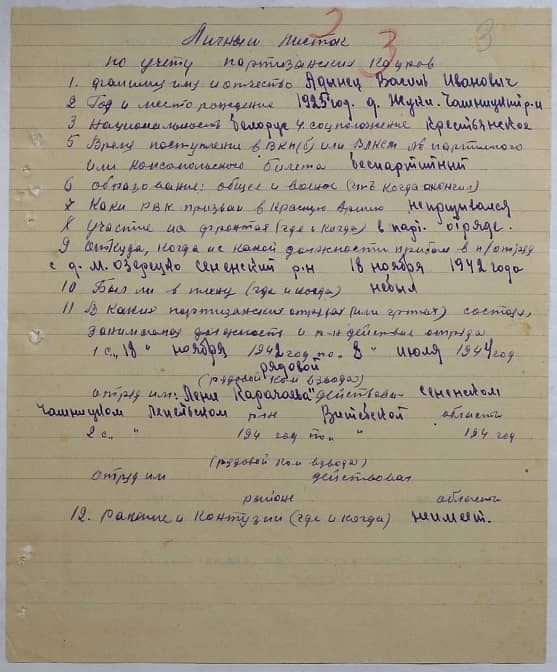 2 3
3
Личный листок
по учету партизанских кадров
1. фамилия имя и отчество Адынец Василь Иванович
2 Год и место рождение 1925 год. д. Жуки-Чашницкий р-н
3 Национальность белорус 4. соцположение крестьянское
5 Время поступления в ВКП(б) или ВЛКСМ № партийного
или комсомольского билета беспартийный
6 образование: общее и военное (гдъ когда окончил)
7 Каки РВК призван в Красную Армию непризывался
8 участие на фронтах (где и когда) в парт. отряде.
9 Откуда, когда и с какой должности пришел в п/отряд
с д. М. Озерецко Сененский р-н 18 ноября 1942 года
10 Был ли в плену (где и когда) небыл
11 В каких партизанских отрядах (или группах) состоял,
занимаемая должность и р-н действие отряда
1 с „18" ноября 1942 год по „8" июля 1944 год
рядовой
(рядовой ком взвода)
отряд им: „Лени Карачаева" действовал Сененском
Чашницком Лепельском р-не Витебской области
2 с „ " 194 год по „ " 194 год
(рядовой ком взвода)
отряд им действовал
районе области
12. Ранение и контузии (где и когда) неимеет.